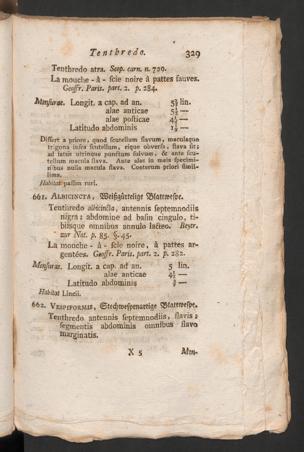 Tenthredo. 329
Tenthredo atra. Scop. carn. n. 720.
La mouche - à - scie noire à pattes fauves.
Geoffr. Paris. part. 2. p. 284.
Mensurae. Longit. a cap. ad an. 5¾ lin.
alae anticae 5½ —
alae posticae 4½ —
Latitudo abdominis 1½ —
Differt a priore, quod scutellum flavum, maculaque
trigona infra scutellum, eique obversa, flava sit;
ad latus utrinque punctum fulvum, & ante scu-
tellum macula flava. Ante alas in meis specimi-
nibus nulla macula flava. Caeterum priori simil-
lima.
Habitat passim ruri.
661. ALBICINCTA, Weißgürtelige Blattwespe.
Tenthredo albicincta, antennis septemnodiis
nigra: abdomine ad basin cingulo, ti-
biisque omnibus annulo lacteo. Beytr.
zur Nat. p. 85. §. 45.
La mouche - à - scie noire, à pattes ar-
gentées. Geoffr. Paris. part. 2. p. 282.
Mensurae. Longit. a cap. ad an. 5 lin.
alae anticae
Latitudo abdominis
Habitat Lincii.
662. VESPIFORMIS, Stechwespenartige Blattwespe.
Tenthredo antennis septemnodiis, flavis:
segmentis abdominis omnibus flavo
marginatis.
X 5 Men-